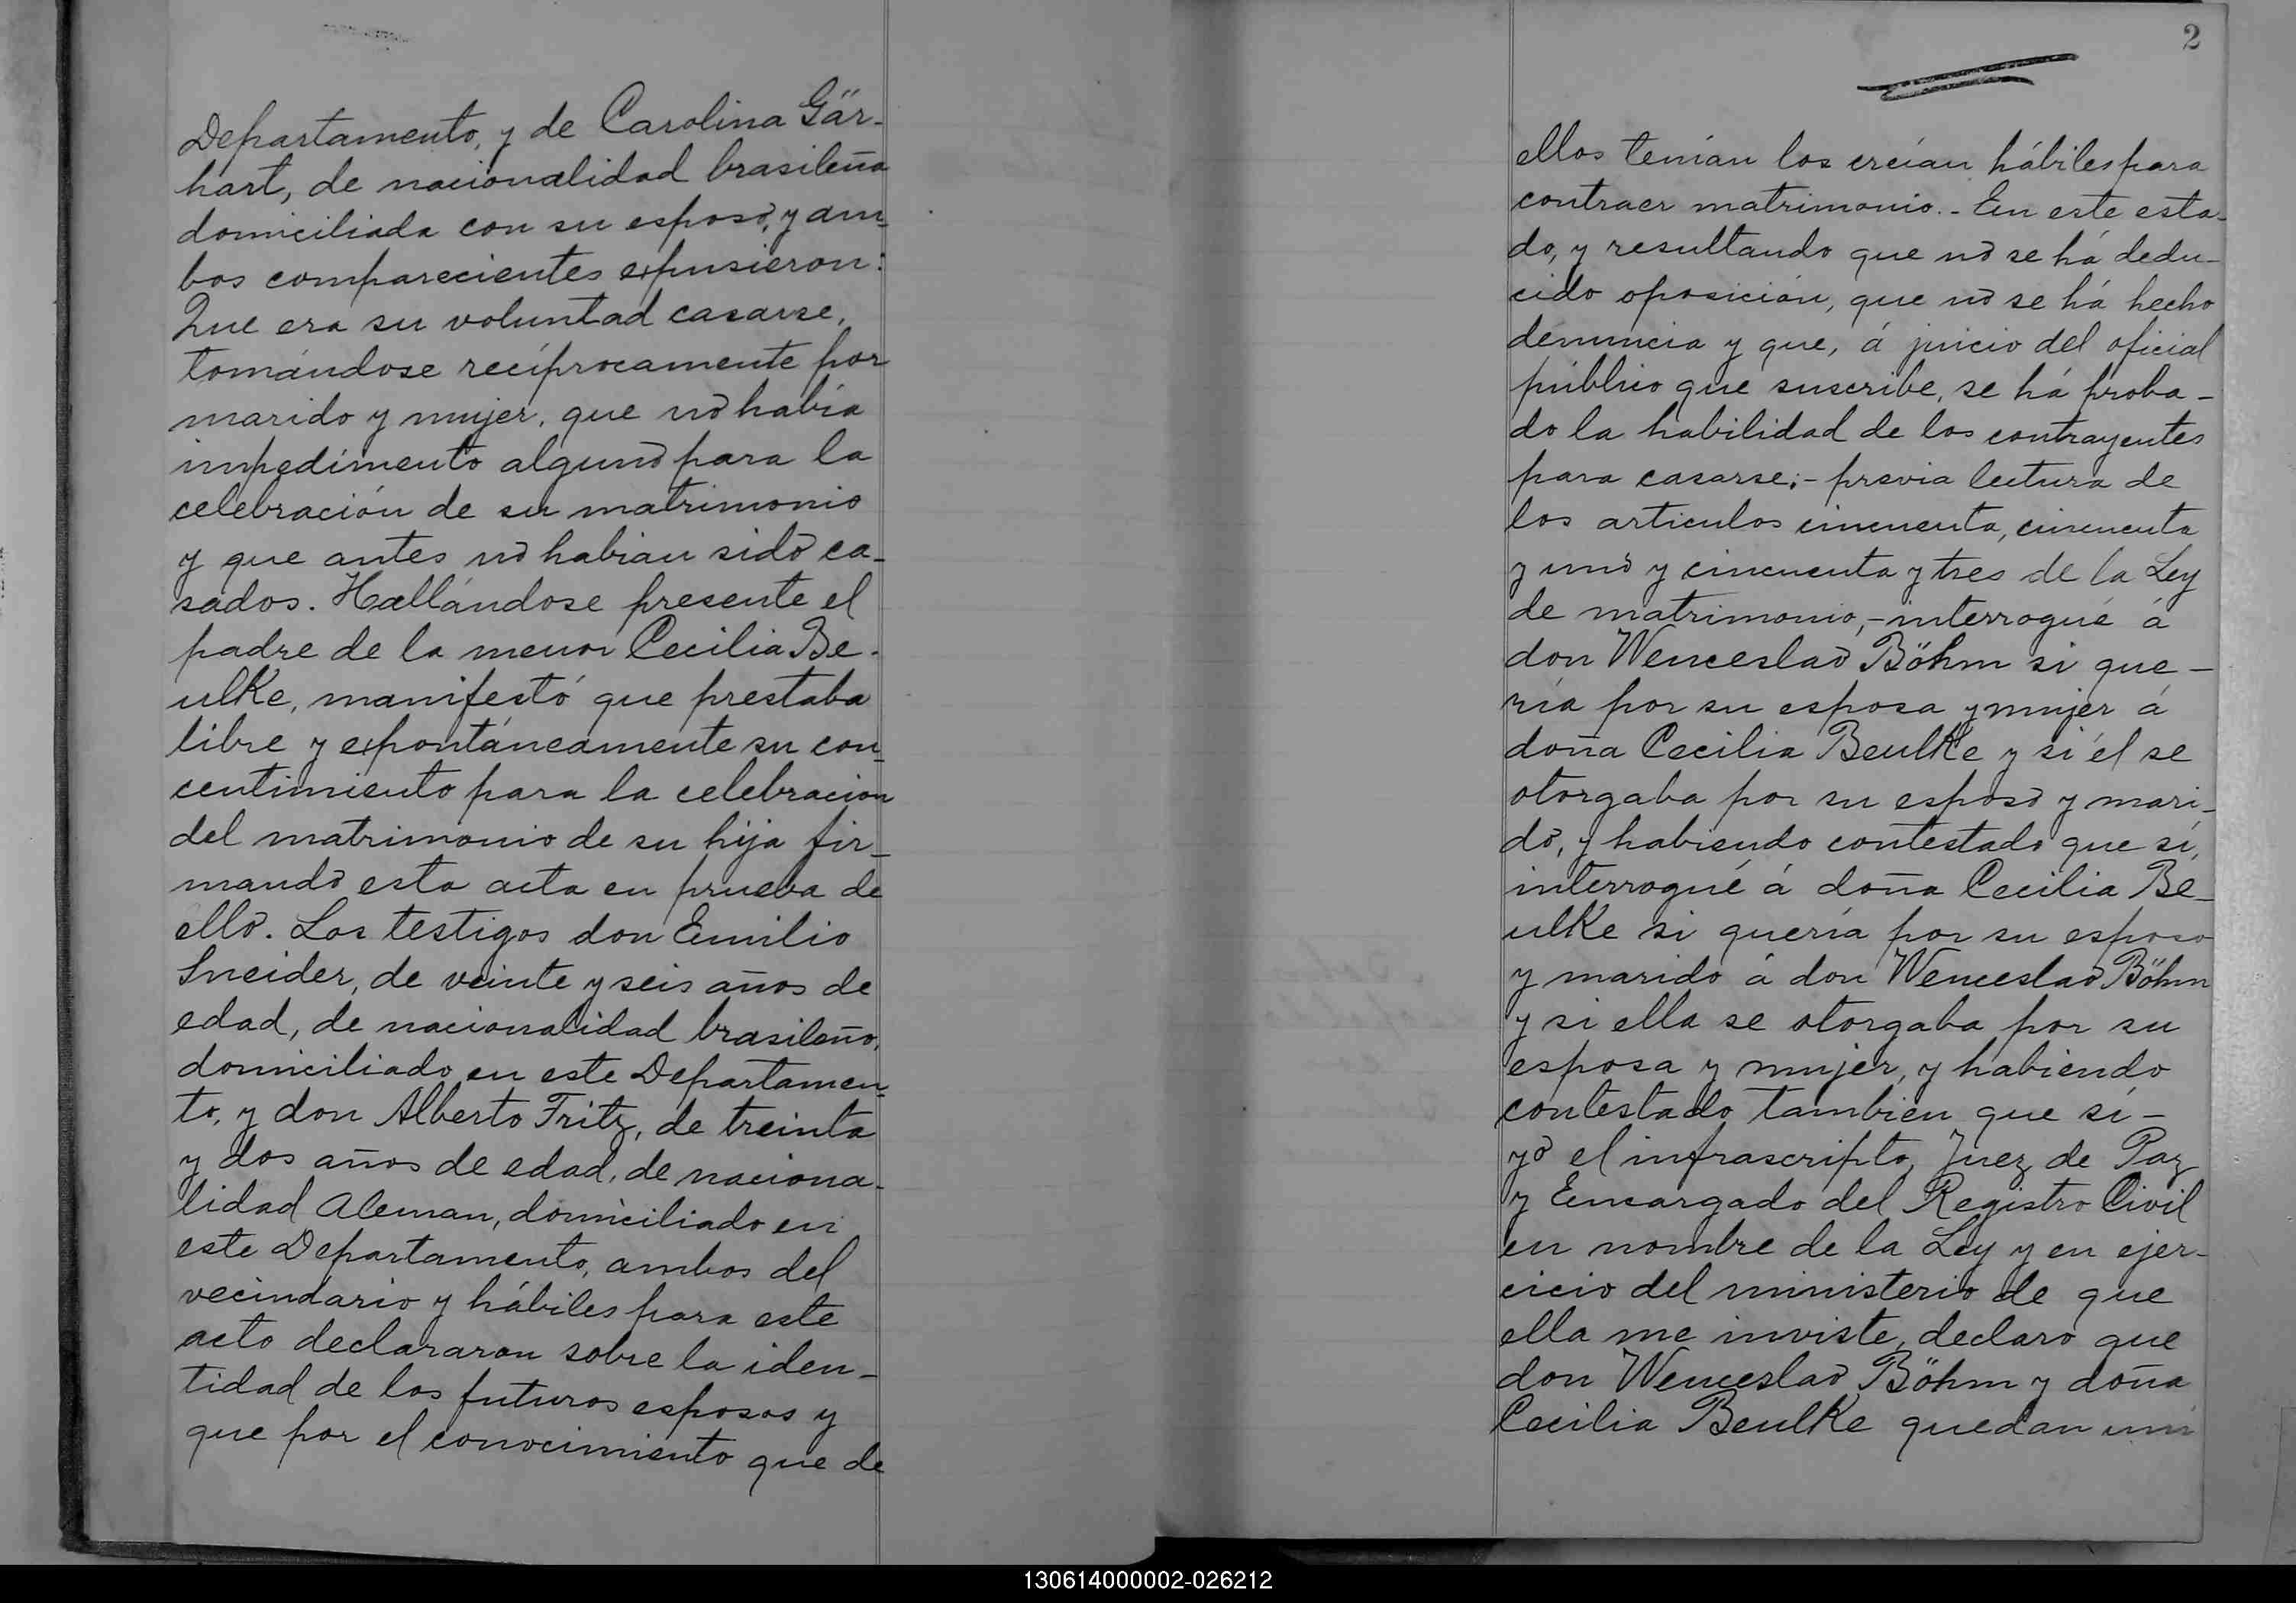 Departamento, y de Carolina Gär-
hart, de nacionalidad brasileña
domiciliada con su esposo, y am-
bos comparecientes expusieron:
Que era su voluntad casarse,
tomándose recíprocamente por
marido y mujer, que nó había
impedimento alguno para la
celebración de su matrimonio
y que antes nó habian sido ca-
sados. Hallándose presente el
padre de la menor Cecilia Be-
ulke, manifestó que prestaba
libre y expontáneamente su con-
centimiento para la celebracion
del matrimonio de su hija fir-
mando esta acta en prueba de
ello. Los testigos don Emilio
Sneider, de veinte y seis años de
edad, de nacionalidad brasileño,
domiciliado en este Departamen-
to, y don Alberto Fritz, de treinta
y dos años de edad, de naciona-
lidad Aleman, domiciliado en
este Departamento, ambos del
vecindario y hábiles para este
acto declararon sobre la iden-
tidad de los futuros esposos y
que por el conocimiento que de
2
ellos tenían los creían hábiles para
contraer matrimonio.- En este esta-
do, y resultando que nó se há dedu-
cido oposición, que nó se há hecho
denuncia y que, á juicio del oficial
público que suscribe, se há proba-
do la habilidad de los contrayentes
para casarse;- previa lectura de
los articulos cincuenta, cincuenta
y uno y cincuenta y tres de la Ley
de matrimonio,- interrogué á
don Wenceslao Böhm si que-
ría por su esposa y mujer á
doña Cecilia Beulke y si él se
otorgaba por su esposo y mari-
do, y habiendo contestado que sí,
interrogué á doña Cecilia Be-
ulke si quería por su esposo
y marido á don Wenceslao Böhm
y si ella se otorgaba por su
esposa y mujer, y habiendo
contestado tambien que sí-
yó el infrascripto, Juez de Paz
y Encargado del Registro Civil
en nombre de la Ley y en ejer-
cicio del ministerio de que
ella me inviste, declaro que
don Wenceslao Böhm y doña
Cecilia Beulke quedan uni
130614000002-026212